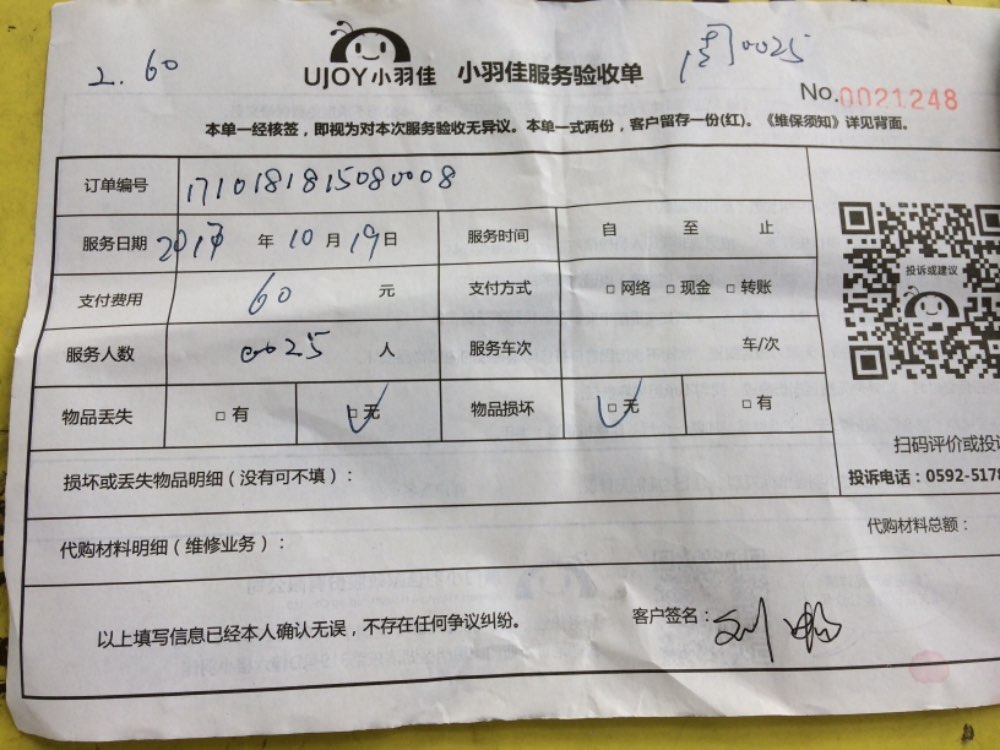 2. 60
周0025
UJOY小羽佳 小羽佳服务验收单
No.0021248
本单一经核签，即视为对本次服务验收无异议。本单一式两份，客户留存一份(红)。《维保须知》详见背面。
订单编号 1710181815080008
服务日期 2017 年 10 月 19 日 服务时间 自 至 止
支付费用 60 元 支付方式 □ 网络 □ 现金 □ 转账
投诉或建议
服务人数 0025 人 服务车次 车/次
物品丢失 □ 有 □ 无 物品损坏 □ 无 □ 有
扫码评价或投诉
损坏或丢失物品明细（没有可不填）：
投诉电话：0592-5178
代购材料明细（维修业务）：
代购材料总额：
以上填写信息已经本人确认无误，不存在任何争议纠纷。 客户签名：刘